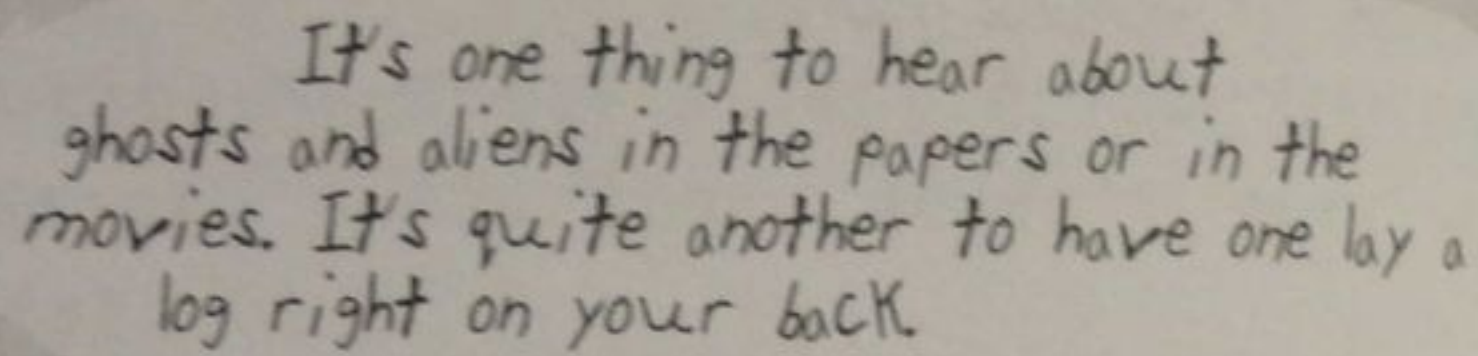 It's one thing to hear about
ghosts and aliens in the papers or in the
movies. It's quite another to have one lay a
log right on your back.